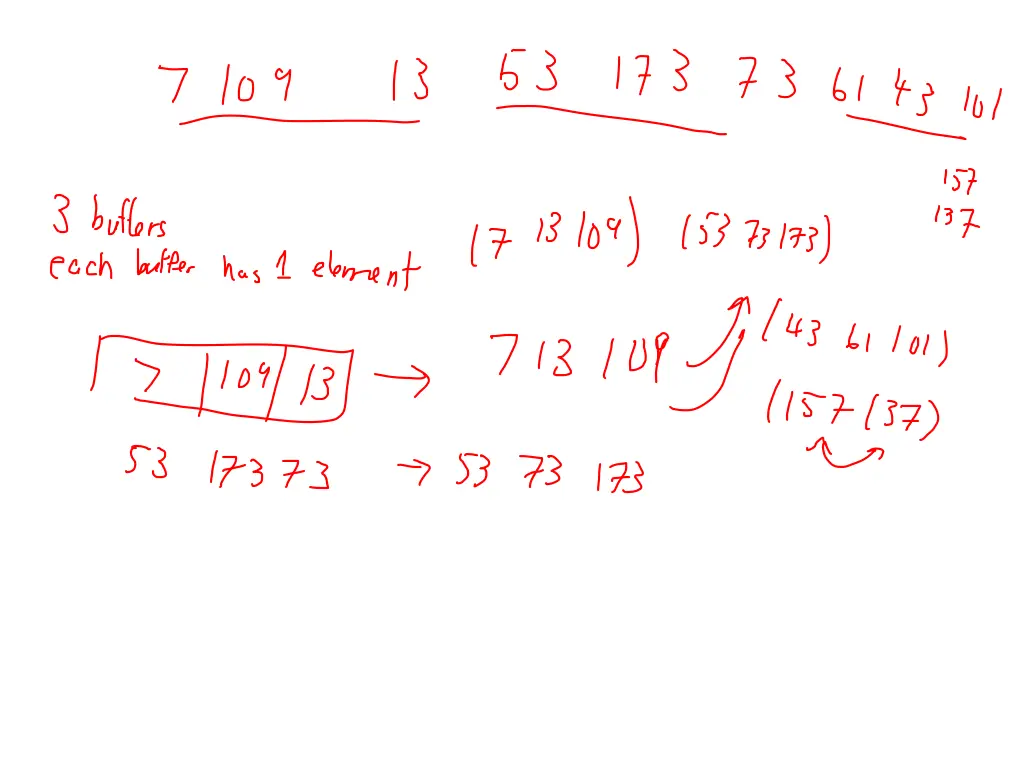 7 109 13 53 173 73 61 43 101
157
137
3 buffers
each buffer has 1 element
(7 13 109) (53 73 173)
7 109 13 → 7 13 109
(43 61 101)
(157 137)
53 173 73 → 53 73 173